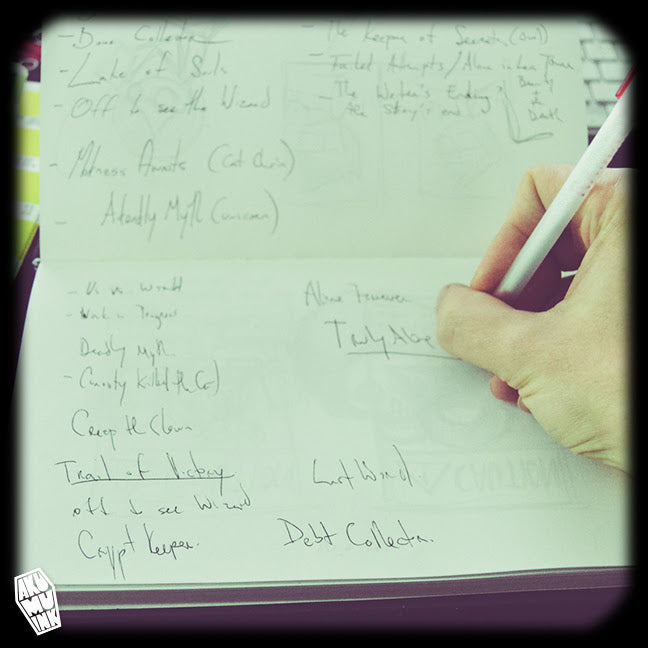 - Bone Collector
- Lake of Souls
- Off to see the Wizard
- Madness Awaits (Cat Chain)
- A deadly Myth (unicorn)
- The Keeper of Secrets (owl)
- Failed Attempts / Alone in
- The Writer's Ending
the Story's end
Beauty
Death
- Us vs World
- Work in Progress
Deadly Myth
- Curiosity Killed the Cat)
Creep the Clown
Trail of Victory
off to see Wizard
Crypt Keeper.
Alone Forever
Truly Alone
Last Word.
Debt Collector.
AKU
MU
INK